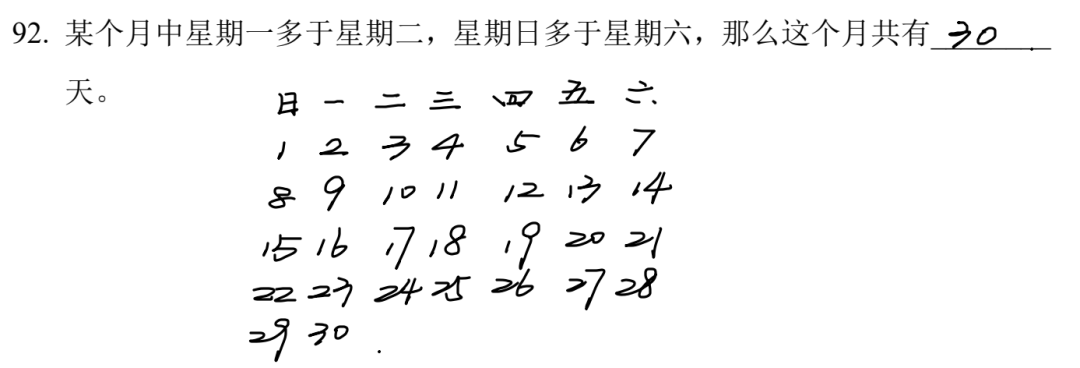 92. 某个月中星期一多于星期二，星期日多于星期六，那么这个月共有 30
天。
日 一 二 三 四 五 六
1 2 3 4 5 6 7
8 9 10 11 12 13 14
15 16 17 18 19 20 21
22 23 24 25 26 27 28
29 30 .